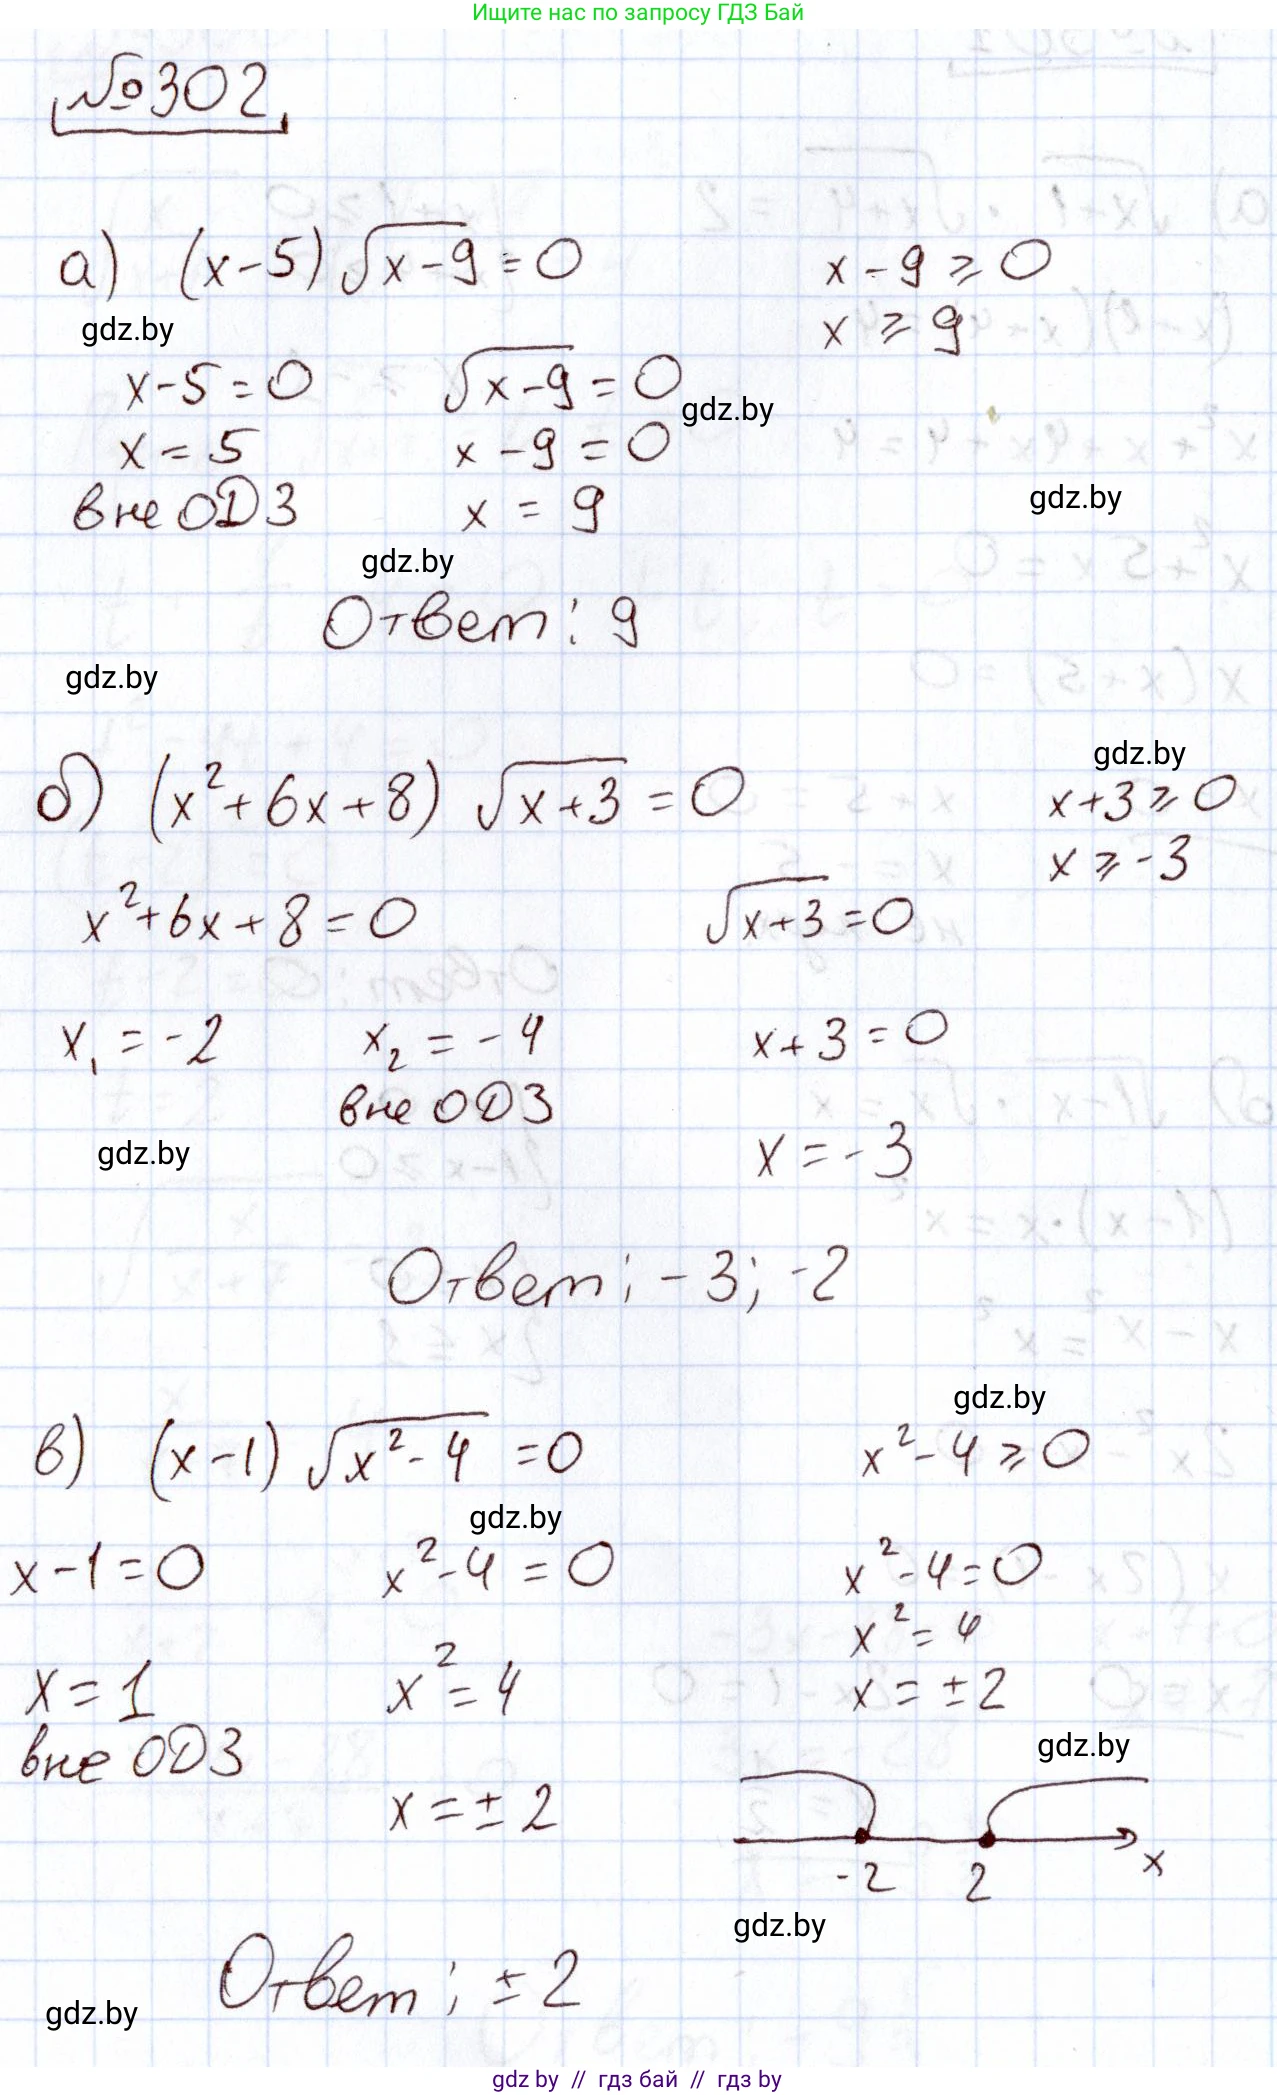 Ищите нас по запросу ГДЗ Бай
№302
а) (x-5) √(x-9) = 0
x - 9 ≥ 0
gdz.by
x ≥ 9
x-5=0
√(x-9) = 0
gdz.by
x = 5
x - 9 = 0
вне ОДЗ
x = 9
gdz.by
gdz.by
Ответ: 9
gdz.by
gdz.by
б) (x²+6x+8) √(x+3) = 0
x+3 ≥ 0
x ≥ -3
x²+6x+8=0
√(x+3) = 0
x₁ = -2
x₂ = -4
x+3=0
вне ОДЗ
gdz.by
x = -3
Ответ: -3; -2
gdz.by
в) (x-1) √(x²-4) = 0
x²-4 ≥ 0
gdz.by
x-1=0
x²-4 = 0
x²-4=0
x²=4
x = 1
x²=4
x = ±2
вне ОДЗ
gdz.by
x = ±2
-2 2 x
gdz.by
Ответ: ±2
gdz.by
gdz by // гдз бай // гдз by